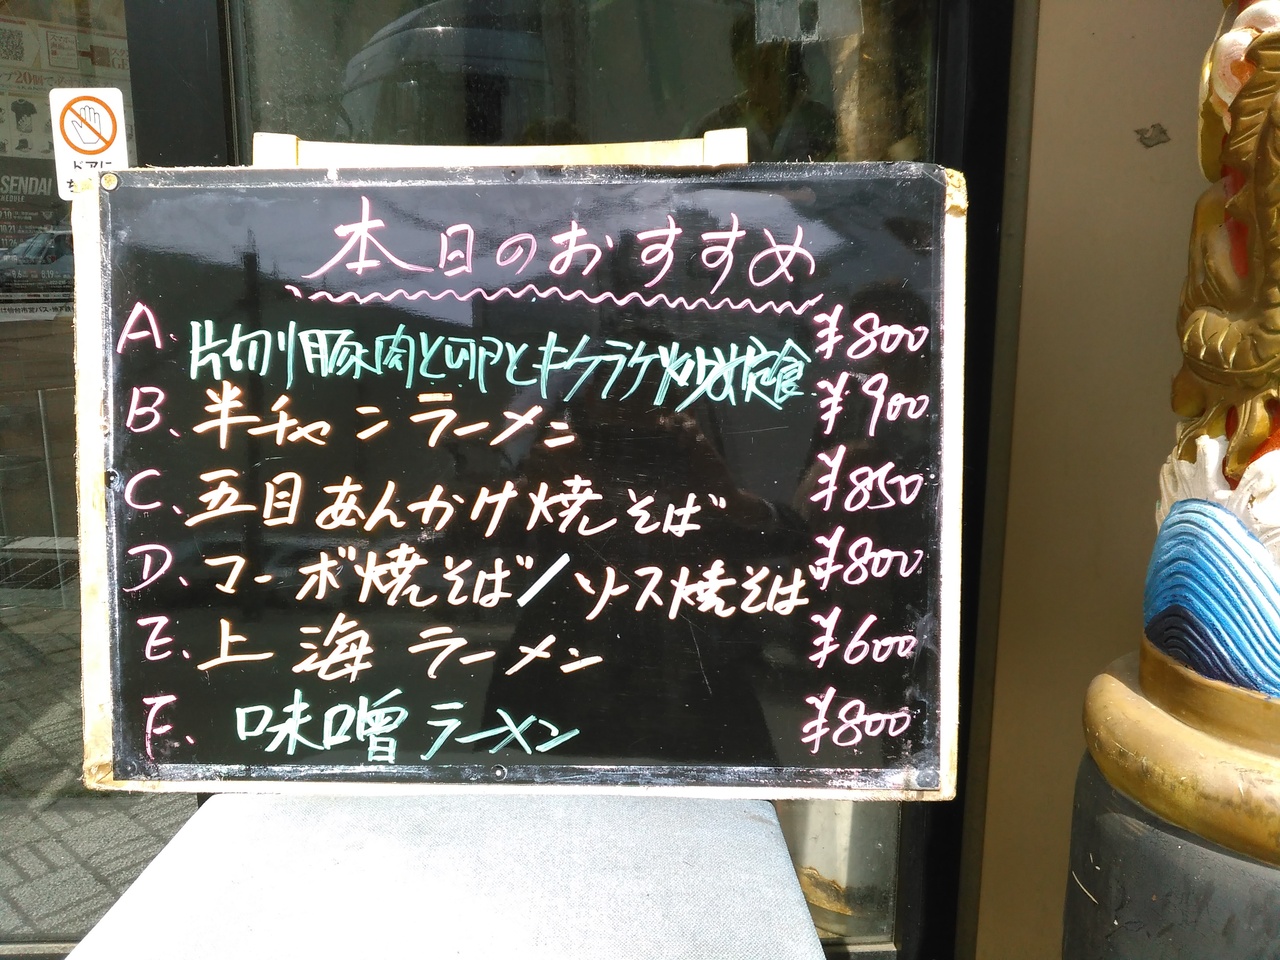 本日のおすすめ
A. 片切り豚肉と卵とキクラゲ炒め定食 ¥800
B、半チャンラーメン ¥900
C、五目あんかけ焼そば ¥850
D、マーボ焼そば/ソース焼そば ¥800
E、上海ラーメン ¥600
F、味噌ラーメン ¥800
ドアに
SENDAI